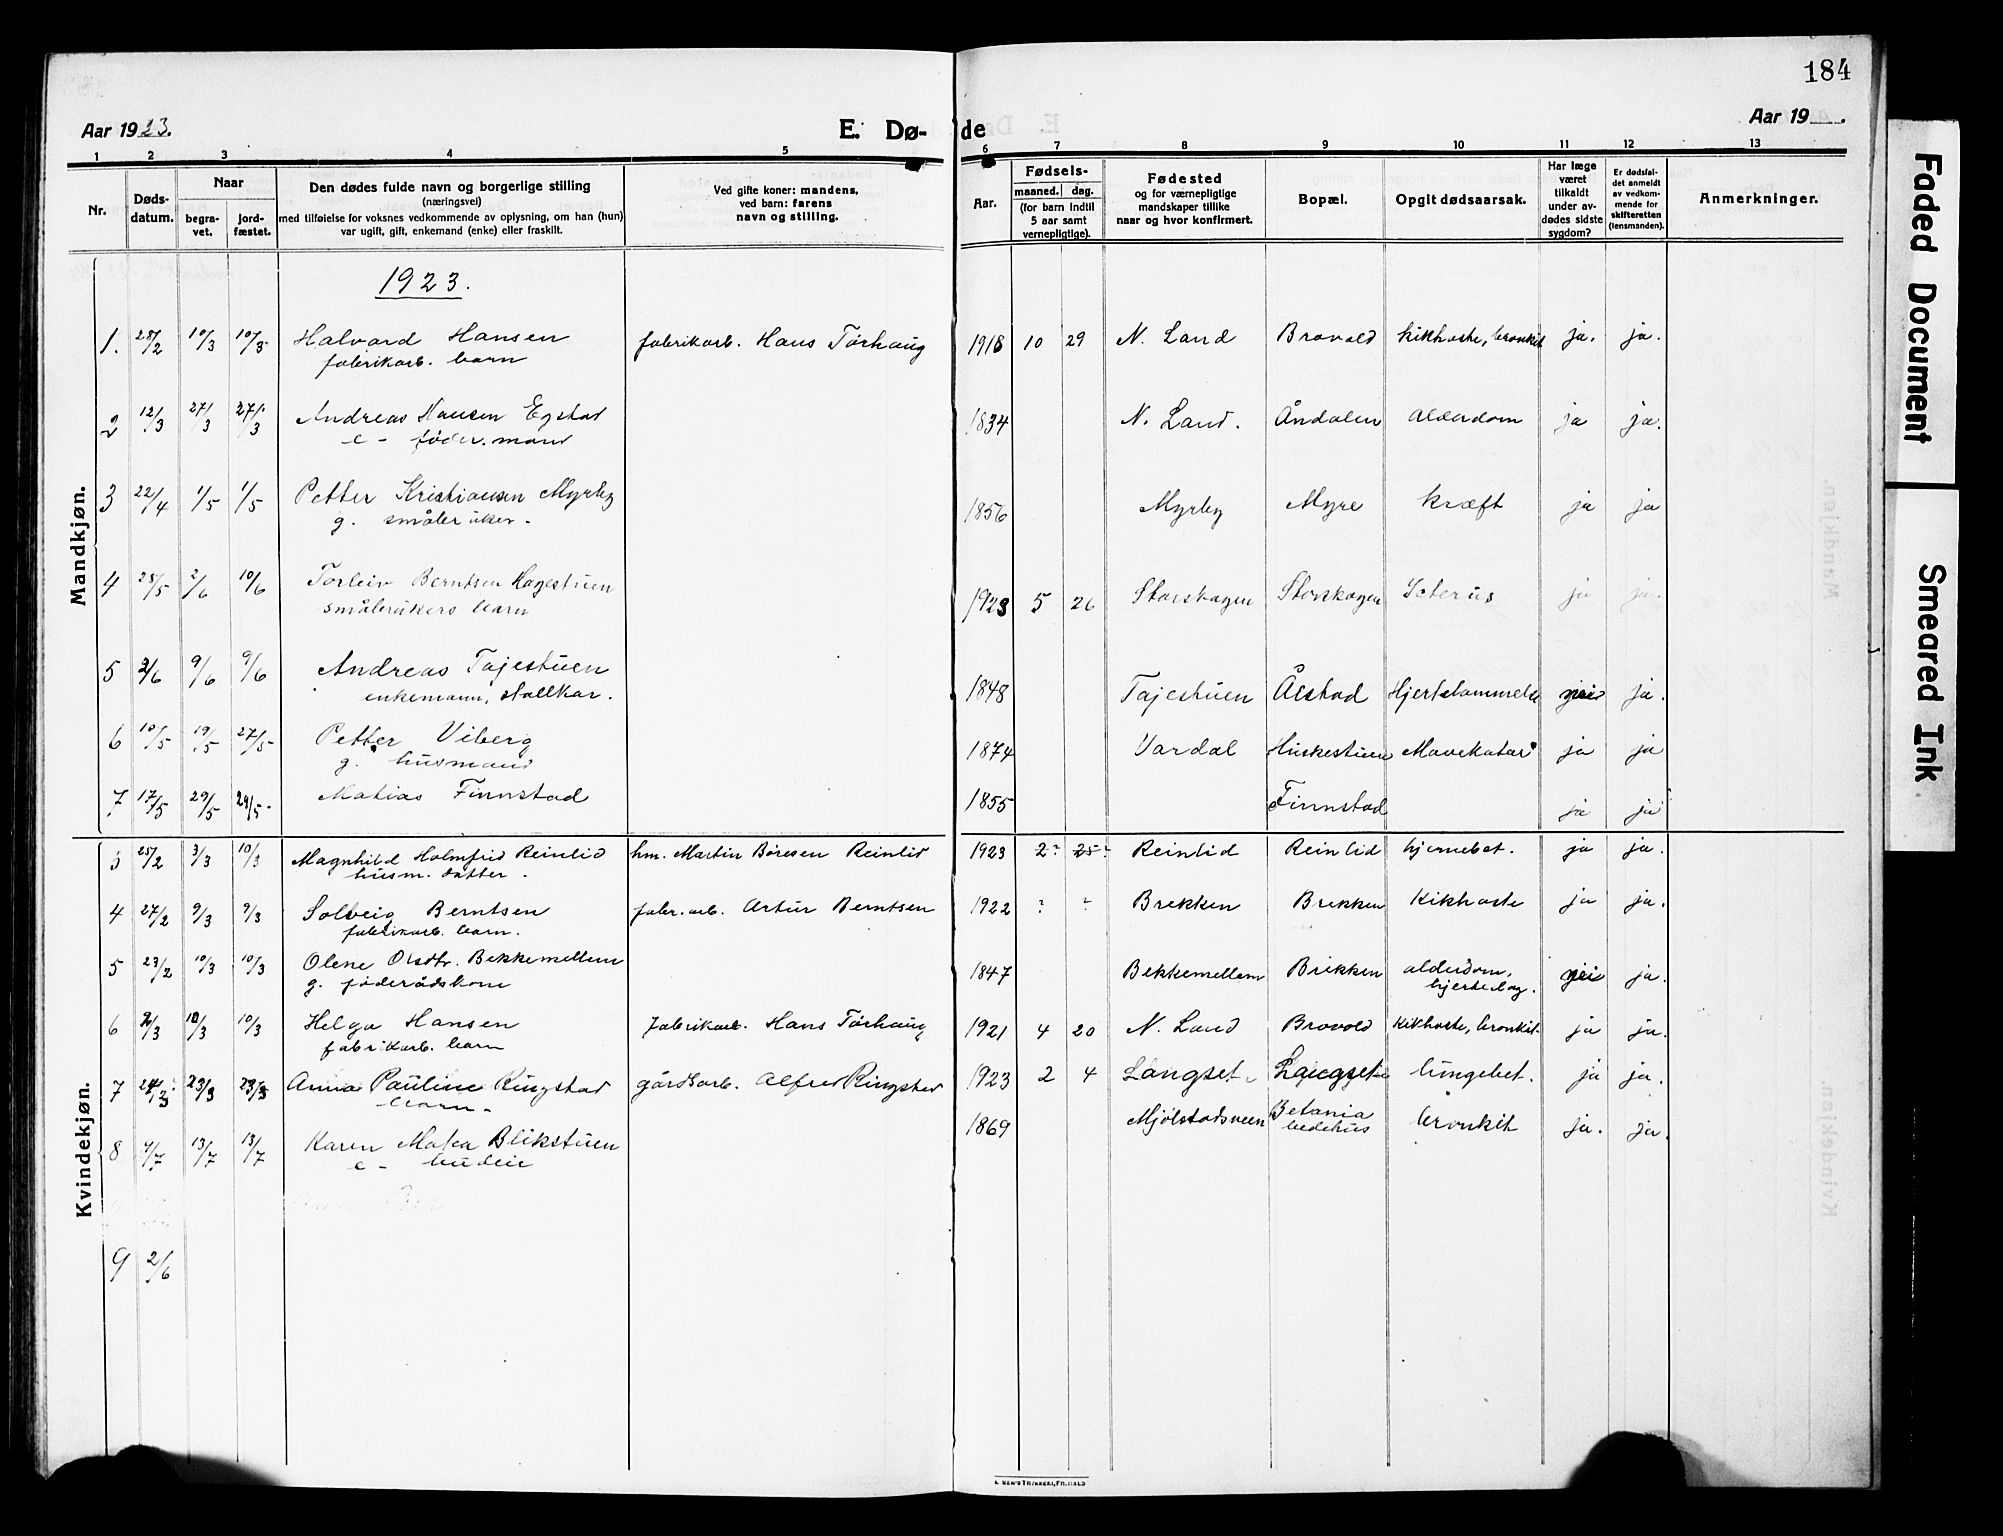 184
Aar 1923.
E. Dø-
de
Aar 19 .
1 2 3 4 5 6 7 8 9 10 11 12 13
Nr.
Døds-
datum.
Naar
begra-
vet.
jord-
fæstet.
Den dødes fulde navn og borgerlige stilling
(næringsvei)
med tilføielse for voksnes vedkommende av oplysning, om han (hun)
var ugift, gift, enkemand (enke) eller fraskilt.
Ved gifte koner: mandens,
ved barn: farens
navn og stilling.
Aar.
Fødsels-
maaned. dag.
(for barn indtil
5 aar samt
vernepligtige).
Fødested
og for værnepligtige
mandskaper tillike
naar og hvor konfirmert.
Bopæl.
Opgit dødsaarsak.
Har læge
været
tilkaldt
under av-
dødes sidste
sygdom?
Er dødsfal-
det anmeldt
av vedkom-
mende for
skifteretten
(lensmanden).
Anmerkninger.
Mandkjøn.
1923.
1. 28/2 10/3 10/3 Halvard Hansen fabrikarb. Hans Tørhaug 1918 10 29 N. Land Brovold kikhoste, bronkit ja. ja.
fabrikarb. barn
2 12/3 27/3 27/3 Andreas Hansen Egstad 1834 N. Land. Åndalen alderdom ja ja.
e - føder. mand
3 22/4 1/5 1/5 Petter Kristiansen Myrby 1856 Myrby Myre kræft ja ja
g. småbruker.
4 28/5 2/6 10/6 Torleiv Berntsen Hagestuen 1923 5 26 Storskogen Storskogen Icterus ja ja.
småbrukers barn
5 2/6 9/6 9/6 Andreas Tajestuen 1848 Tajestuen Ålstad Hjertelammelse nei ja.
enkemann, stallkar.
6 10/5 19/5 27/5 Petter Viberg 1874 Vardal Huskestuen Mavekatar ja ja
g. husmand
7 17/5 29/5 29/5 Matias Finnstad 1855 Finnstad ja ja
Kvindekjøn.
3 25/2 3/3 10/3 Magnhild Holmfrid Reinlid hm. Martin Børesen Reinlid 1923 2? 25? Reinlid Reinlid hjernebet. ja ja.
husm. datter.
4 27/2 9/3 9/3 Solveig Berntsen fabr. arb. Artur Berntsen 1922 ? ? Brekken Brekken Kikhoste ja ja.
fabrikarb. barn.
5 23/2 10/3 10/3 Olene Olsdtr. Bekkemellem 1847 Bekkemellem Brekken alderdom, nei ja.
g. føderådskone hjerteslag.
6 2/3 10/3 10/3 Helga Hansen fabrikarb. Hans Tørhaug 1921 4 20 N. Land Brovold Kikhoste, bronkit. ja ja.
fabrikarb. barn
7 23/3 23/3 Anna Pauline Ringstad gårdsarb. Alfred Ringstad 1923 2 4 Langset. Langset lungebet. ja ja.
barn.
8 4/7 13/7 13/7 Karen Matea Blikstuen 1869 Mjølstadsveen Betania bronkit ja. ja.
e - budeie bedehus
9 2/6
Faded Document
Smeared Ink.